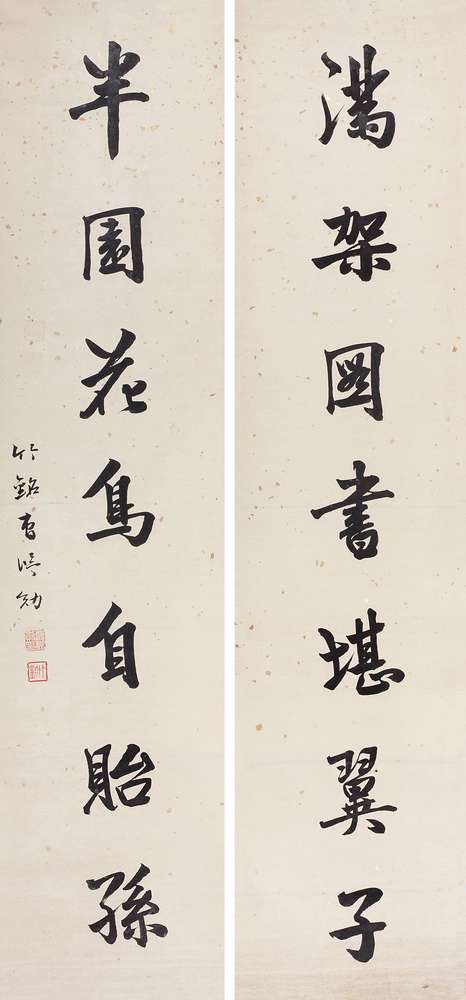 滿架圖書堪翼子
半園花鳥自貽孫
竹銘曹鴻勛